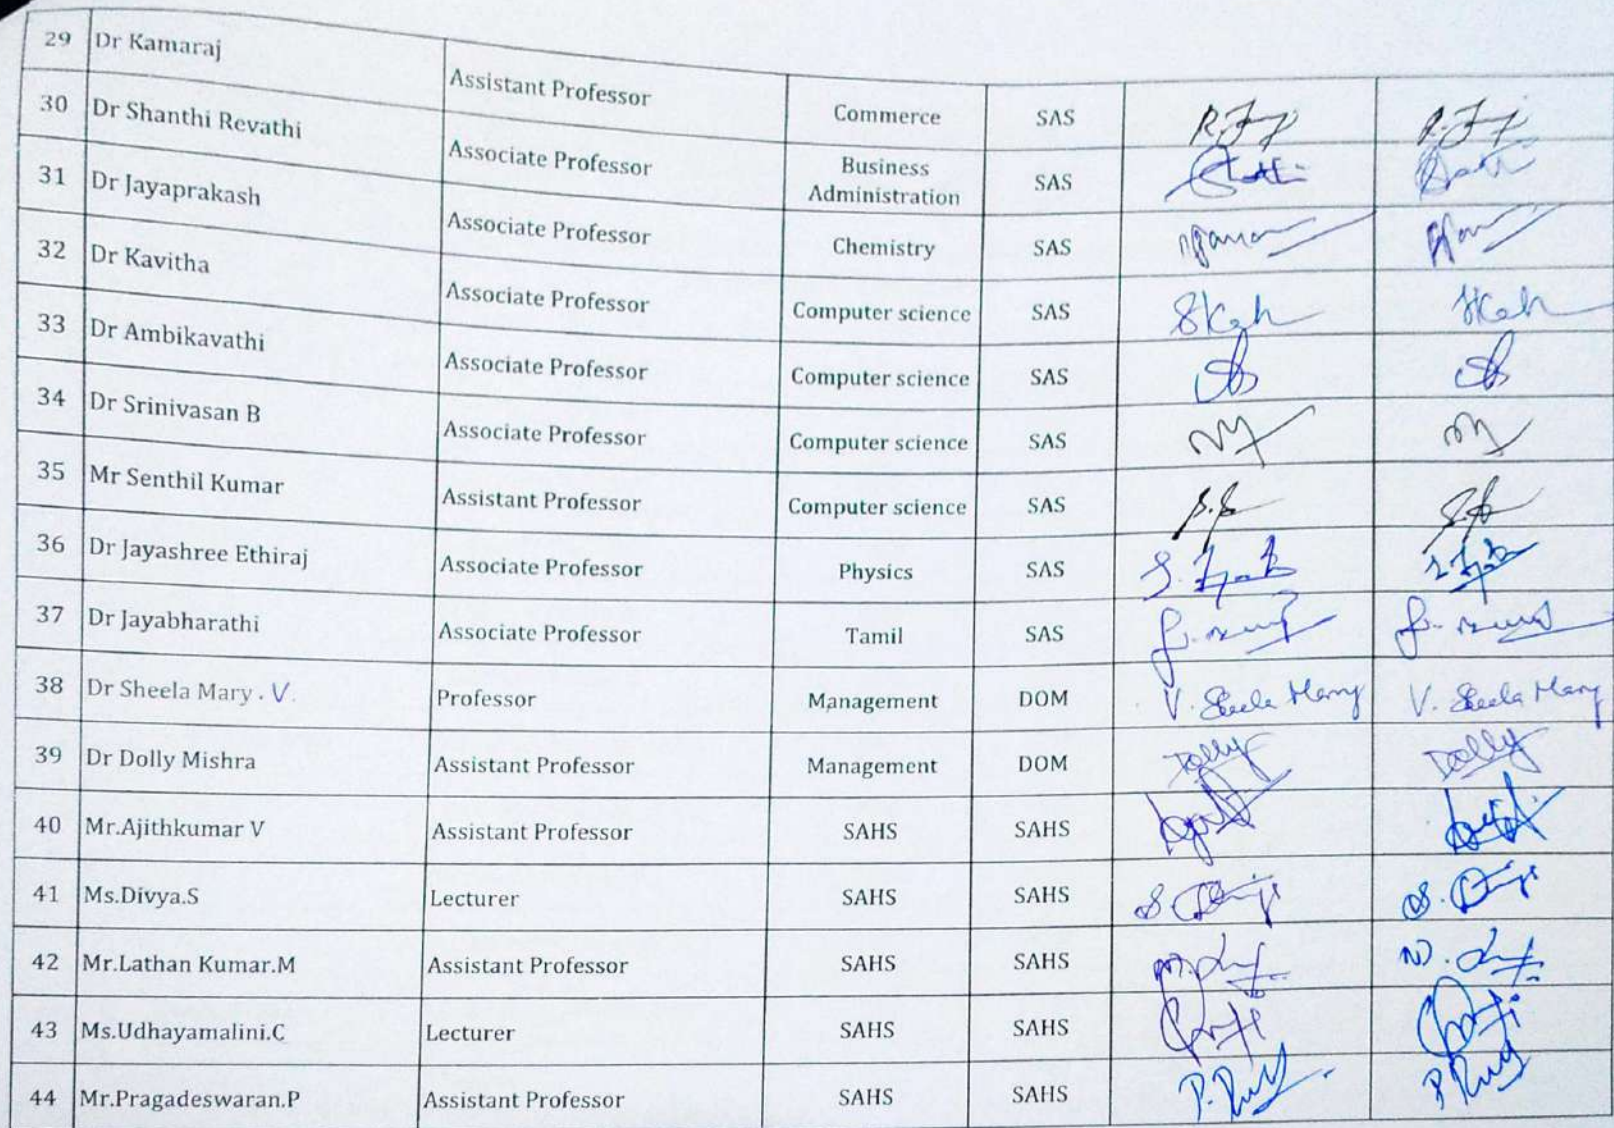 29 Dr Kamaraj Assistant Professor Commerce SAS
30 Dr Shanthi Revathi Associate Professor Business Administration SAS
31 Dr Jayaprakash Associate Professor Chemistry SAS
32 Dr Kavitha Associate Professor Computer science SAS
33 Dr Ambikavathi Associate Professor Computer science SAS
34 Dr Srinivasan B Associate Professor Computer science SAS
35 Mr Senthil Kumar Assistant Professor Computer science SAS
36 Dr Jayashree Ethiraj Associate Professor Physics SAS
37 Dr Jayabharathi Associate Professor Tamil SAS
38 Dr Sheela Mary . V. Professor Management DOM V. Sheela Mary V. Sheela Mary
39 Dr Dolly Mishra Assistant Professor Management DOM Dolly Dolly
40 Mr.Ajithkumar V Assistant Professor SAHS SAHS
41 Ms.Divya.S Lecturer SAHS SAHS
42 Mr.Lathan Kumar.M Assistant Professor SAHS SAHS
43 Ms.Udhayamalini.C Lecturer SAHS SAHS
44 Mr.Pragadeswaran.P Assistant Professor SAHS SAHS